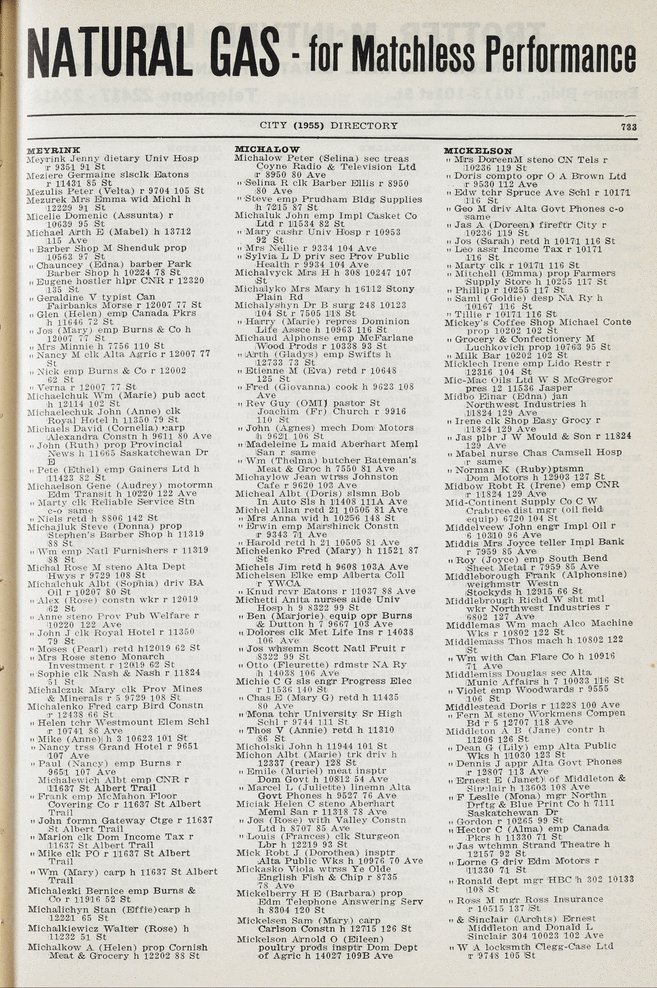 NATURAL GAS - for Matchless Performance
CITY (1955) DIRECTORY 733
MEYRINK
Meyrink Jenny dietary Univ Hosp
r 9351 91 St
Meziere Germaine slsclk Eatons
r 11431 85 St
Mezulis Peter (Velta) r 9704 105 St
Mezurek Mrs Emma wid Michl h
12229 91 St
Micelie Domenic (Assunta) r
10639 95 St
Michael Arth B (Mabel) h 13712
115 Ave
" Barber Shop M Shenduk prop
10563 97 St
" Chauncey (Edna) barber Park
Barber Shop h 10224 78 St
" Eugene hostler hlpr CNR r 12320
135 St
" Geraldine V typist Can
Fairbanks Morse r 12007 77 St
" Glen (Helen) emp Canada Pkrs
h 11646 72 St
" Jos (Mary) emp Burns & Co h
12007 77 St
" Mrs Minnie h 7756 110 St
" Nancy M clk Alta Agric r 12007 77
St
" Nick emp Burns & Co r 12002
62 St
" Verna r 12007 77 St
Michaelchuk Wm (Marie) pub acct
h 12114 102 St
Michaelechuk John (Anne) clk
Royal Hotel h 11350 79 St
Michaels David (Cornelia) carp
Alexandra Constn h 9611 80 Ave
" John (Ruth) prop Provincial
News h 11665 Saskatchewan Dr
E
" Pete (Ethel) emp Gainers Ltd h
11423 82 St
Michaelson Gene (Audrey) motormn
Edm Transit h 10220 122 Ave
" Marty clk Reliable Service Stn
c-o same
" Niels retd h 8806 142 St
Michajluk Steve (Donna) prop
Stephen's Barber Shop h 11319
88 St
" Wm emp Natl Furnishers r 11319
88 St
Michal Rose M steno Alta Dept
Hwys r 9729 108 St
Michalchuk Albt (Sophia) driv BA
Oil r 10207 80 St
" Alex (Rose) constn wkr r 12019
62 St
" Anne steno Prov Pub Welfare r
10220 122 Ave
" John J clk Royal Hotel r 11350
79 St
" Moses (Pearl) retd h12019 62 St
" Mrs Rose steno Monarch
Investment r 12019 62 St
" Sophie clk Nash & Nash r 11824
51 St
Michalczuk Mary clk Prov Mines
& Minerals r 5 9729 108 St
Michalenko Fred carp Bird Constn
r 12438 66 St
" Helen tchr Westmount Elem Schl
r 10741 86 Ave
" Mike (Anne) h 3 10623 101 St
" Nancy trss Grand Hotel r 9651
107 Ave
" Paul (Nancy) emp Burns r
9651 107 Ave
Michalewich Albt emp CNR r
11637 St Albert Trail
" Frank emp McMahon Floor
Covering Co r 11637 St Albert
Trail
" John formn Gateway Ctge r 11637
St Albert Trail
" Marion clk Dom Income Tax r
11637 St Albert Trail
" Mike clk PO r 11637 St Albert
Trail
" Wm (Mary) carp h 11637 St Albert
Trail
Michalezki Bernice emp Burns &
Co r 11916 52 St
Michalichyn Stan (Effie)carp h
12221 65 St
Michalkiewicz Walter (Rose) h
11232 51 St
Michalkow A (Helen) prop Cornish
Meat & Grocery h 12202 88 St
MICHALOW
Michalow Peter (Selina) sec treas
Coyne Radio & Television Ltd
r 8950 80 Ave
" Selina R clk Barber Ellis r 8950
80 Ave
" Steve emp Prudham Bldg Supplies
h 7215 87 St
Michaluk John emp Impl Casket Co
Ltd r 11534 82 St
" Mary cashr Univ Hosp r 10953
92 St
" Mrs Nellie r 9334 104 Ave
" Sylvia L D priv sec Prov Public
Health r 9934 104 Ave
Michalvyck Mrs H h 308 10247 107
St
Michalyko Mrs Mary h 16112 Stony
Plain Rd
Michalyshyn Dr B surg 248 10123
104 St r 7505 118 St
" Harry (Marie) repres Dominion
Life Assce h 10963 116 St
Michaud Alphonse emp McFarlane
Wood Prods r 10338 93 St
" Arth (Gladys) emp Swifts h
12733 73 St
" Etienne M (Eva) retd r 10648
125 St
" Fred (Giovanna) cook h 9623 108
Ave
" Rev Guy (OMI) pastor St
Joachim (Fr) Church r 9916
110 St
" John (Agnes) mech Dom Motors
h 9621 106 St
" Madeleine L maid Aberhart Meml
San r same
" Wm (Thelma) butcher Bateman's
Meat & Groc h 7550 81 Ave
Michaylow Jean wtrss Johnston
Cafe r 9620 103 Ave
Micheal Albt (Doris) slsmn Bob
In Auto Sls h 11408 111A Ave
Michel Allan retd 21 10505 81 Ave
" Mrs Anna wid h 10256 148 St
" Erwin emp Marshinck Constn
r 9343 71 Ave
" Harold retd h 21 10505 81 Ave
Michelenko Fred (Mary) h 11521 87
St
Michels Jim retd h 9608 103A Ave
Michelsen Elke emp Alberta Coll
r YWCA
" Knud rcvr Eatons r 11037 88 Ave
Michetti Anita nurses aide Univ
Hosp h 9 8322 99 St
" Ben (Marjorie) equip opr Burns
& Dutton h 7 9667 103 Ave
" Dolores clk Met Life Ins r 14038
106 Ave
" Jos whsemn Scott Natl Fruit r
8322 99 St
" Otto (Fleurette) rdmstr NA Ry
h 14038 106 Ave
Michie C G sls engr Progress Elec
r 11536 140 St
" Chas E (Mary G) retd h 11435
80 Ave
" Mona tchr University Sr High
Schl r 9744 111 St
" Thos V (Annie) retd h 11310
86 St
Micholski John h 11944 101 St
Michon Albt (Marie) trk driv h
12337 (rear) 128 St
" Emile (Muriel) meat insptr
Dom Govt h 10812 54 Ave
" Marcel L (Juliette) linemn Alta
Govt Phones h 9527 76 Ave
Miciak Helen C steno Aberhart
Meml San r 11318 78 Ave
" Jos (Rose) with Valley Constn
Ltd h 8707 85 Ave
" Louis (Frances) clk Sturgeon
Lbr h 12219 93 St
Mick Robt J (Dorothea) insptr
Alta Public Wks h 10976 70 Ave
Mickasko Viola wtrss Ye Olde
English Fish & Chip r 8735
78 Ave
Mickelberry H E (Barbara) prop
Edm Telephone Answering Serv
h 8304 120 St
Mickelsen Sam (Mary) carp
Carlson Constn h 12715 126 St
Mickelson Arnold O (Eileen)
poultry prods insptr Dom Dept
of Agric h 14027 109B Ave
MICKELSON
" Mrs DoreenM steno CN Tels r
10236 119 St
" Doris compto opr O A Brown Ltd
r 9530 112 Ave
" Edw tchr Spruce Ave Schl r 10171
116 St
" Geo M driv Alta Govt Phones c-o
same
" Jas A (Doreen) fireftr City r
10236 119 St
" Jos (Sarah) retd h 10171 116 St
" Leo assr Income Tax r 10171
116 St
" Marty clk r 10171 116 St
" Mitchell (Emma) prop Farmers
Supply Store h 10255 117 St
" Phillip r 10255 117 St
" Saml (Goldie) desp NA Ry h
10167 116 St
" Tillie r 10171 116 St
Mickey's Coffee Shop Michael Conte
prop 10202 102 St
" Grocery & Confectionery M
Luchkovich prop 10763 95 St
" Milk Bar 10202 102 St
Micklech Irene emp Lido Restr r
12316 104 St
Mic-Mac Oils Ltd W S McGregor
pres 12 11536 Jasper
Midbo Einar (Edna) jan
Northwest Industries h
11824 129 Ave
" Irene clk Shop Easy Grocy r
11824 129 Ave
" Jas plbr J W Mould & Son r 11824
129 Ave
" Mabel nurse Chas Camsell Hosp
r same
" Norman K (Ruby)ptsmn
Dom Motors h 12903 127 St
Midbow Robt K (Irene) emp CNR
r 11824 129 Ave
Mid-Continent Supply Co C W
Crabtree dist mgr (oil field
equip) 6720 104 St
Middelveew John engr Impl Oil r
6 10310 96 Ave
Middis Mrs Joyce teller Impl Bank
r 7959 85 Ave
" Roy (Joyce) emp South Bend
Sheet Metal r 7959 85 Ave
Middleborough Frank (Alphonsine)
weighmstr Westn
Stockyds h 12915 66 St
Middlebrough Richd W sht mtl
wkr Northwest Industries r
6802 127 Ave
Middlemas Wm mach Alco Machine
Wks r 10802 122 St
Middlemass Thos mach h 10802 122
St
" Wm with Can Flare Co h 10916
71 Ave
Middlemiss Douglas sec Alta
Munic Affairs h 7 10033 116 St
" Violet emp Woodwards r 9555
106 St
Middlestead Doris r 11228 100 Ave
" Fern M steno Workmens Compen
Bd r 5 12707 118 Ave
Middleton A B (Jane) contr h
11206 126 St
" Dean G (Lily) emp Alta Public
Wks h 11030 123 St
" Dennis J appr Alta Govt Phones
r 12807 113 Ave
" Ernest E (Janet) of Middleton &
Sinclair h 13603 108 Ave
" F Leslie (Mona) mgr Northn
Drftg & Blue Print Co h 7111
Saskatchewan Dr
" Gordon r 10265 99 St
" Hector C (Alma) emp Canada
Pkrs h 11330 71 St
" Jas wtchmn Strand Theatre h
12157 92 St
" Lorne G driv Edm Motors r
11330 71 St
" Ronald dept mgr HBC h 302 10133
108 St
" Ross M mgr Ross Insurance
r 10515 137 St
" & Sinclair (Archts) Ernest
Middleton and Donald L
Sinclair 304 10023 102 Ave
" W A locksmth Clegg-Case Ltd
r 9748 105 St